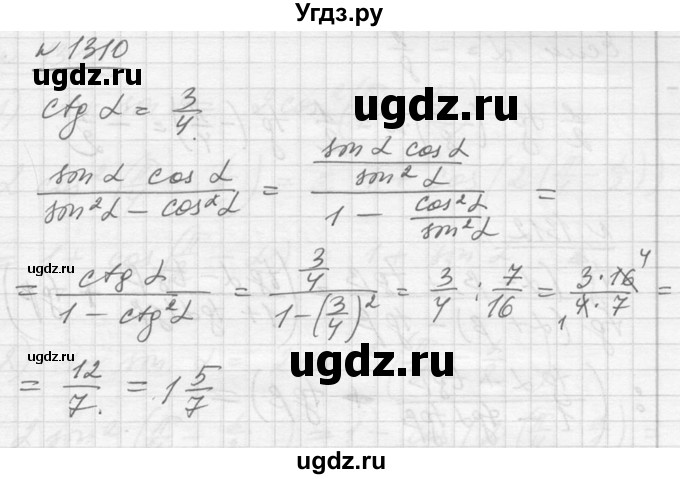 Угдз.ру
№ 1310
ctg α = 3/4
ugdz.ru
(sin α cos α)/(sin²α − cos²α) = ((sin α cos α)/(sin² α))/(1 − (cos²α)/(sin²α)) =
ugdz.ru
ugdz.ru
= (ctg α)/(1 − ctg²α) = (3/4)/(1−(3/4)²) = 3/4 : 7/16 = (3·16 4)/(1 4·7) =
ugdz.ru
ugdz.ru
= 12/7. = 1 5/7
ugdz.ru